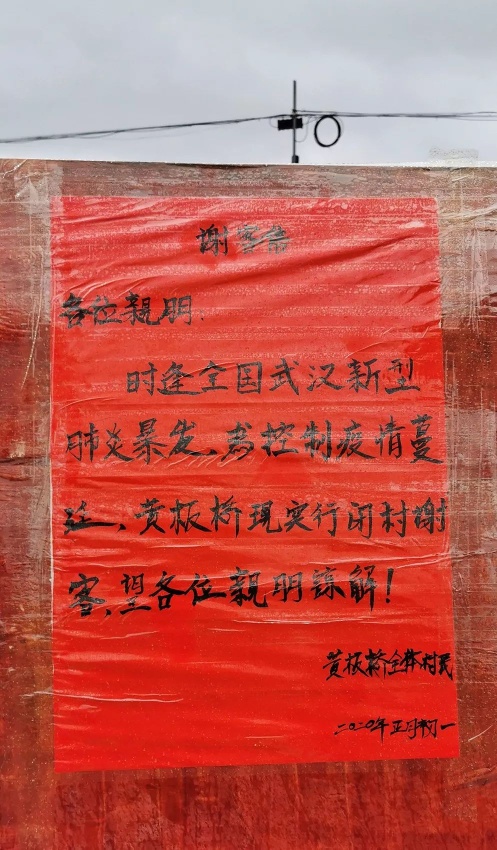 谢客告
各位親朋:
时逢全国武汉新型
肺炎暴发、为控制疫情蔓
延、黄板桥现实行闭村谢
客、望各位親朋谅解!
黄板桥全体村民
二〇二〇年正月初一